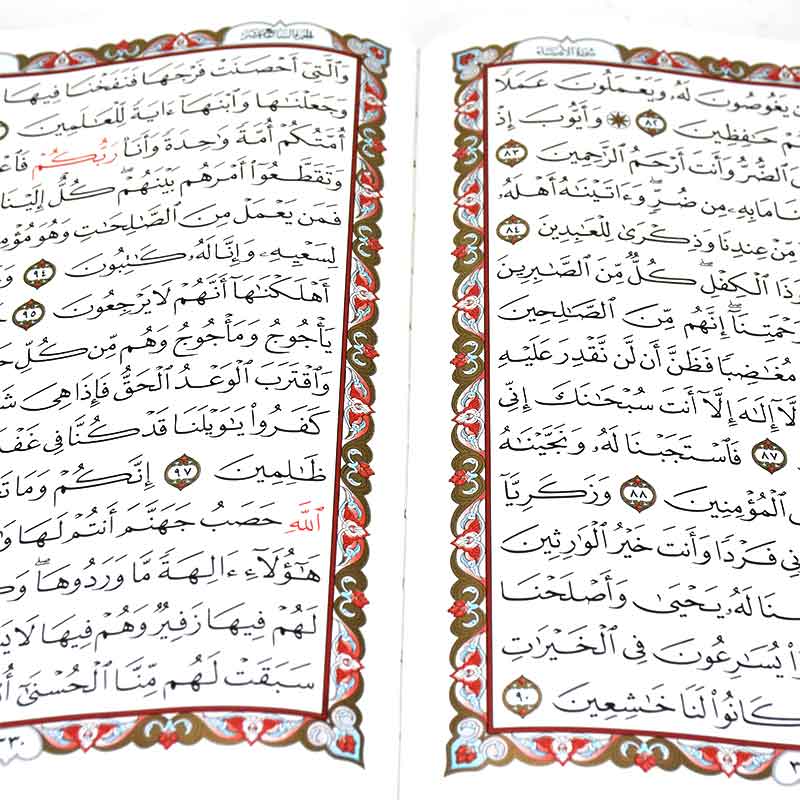 سُورَةُ الأَنبِيَاءِ
يَغُوصُونَ لَهُۥ وَيَعْمَلُونَ عَمَلًا
حَٰفِظِينَ ٨٢ ۞ وَأَيُّوبَ إِذْ
ٱلضُّرُّ وَأَنتَ أَرْحَمُ ٱلرَّٰحِمِينَ ٨٣
مَا بِهِۦ مِن ضُرٍّۖ وَءَاتَيْنَٰهُ أَهْلَهُۥ
مِّنْ عِندِنَا وَذِكْرَىٰ لِلْعَٰبِدِينَ ٨٤
وَذَا ٱلْكِفْلِۖ كُلٌّ مِّنَ ٱلصَّٰبِرِينَ
إِنَّهُم مِّنَ ٱلصَّٰلِحِينَ
مُغَٰضِبًا فَظَنَّ أَن لَّن نَّقْدِرَ عَلَيْهِ
إِلَٰهَ إِلَّآ أَنتَ سُبْحَٰنَكَ إِنِّي
٨٧ فَٱسْتَجَبْنَا لَهُۥ وَنَجَّيْنَٰهُ
ٱلْمُؤْمِنِينَ ٨٨ وَزَكَرِيَّآ
فَرْدًا وَأَنتَ خَيْرُ ٱلْوَٰرِثِينَ
لَهُۥ يَحْيَىٰ وَأَصْلَحْنَا
يُسَٰرِعُونَ فِي ٱلْخَيْرَٰتِ
كَانُوا۟ لَنَا خَٰشِعِينَ ٩٠
وَٱلَّتِيٓ أَحْصَنَتْ فَرْجَهَا فَنَفَخْنَا فِيهَا
وَجَعَلْنَٰهَا وَٱبْنَهَآ ءَايَةً لِّلْعَٰلَمِينَ
أُمَّتُكُمْ أُمَّةً وَٰحِدَةً وَأَنَا۠ رَبُّكُمْ
وَتَقَطَّعُوٓا۟ أَمْرَهُم بَيْنَهُمْۖ كُلٌّ إِلَيْنَا
فَمَن يَعْمَلْ مِنَ ٱلصَّٰلِحَٰتِ وَهُوَ
لِسَعْيِهِۦ وَإِنَّا لَهُۥ كَٰتِبُونَ ٩٤
أَهْلَكْنَٰهَآ أَنَّهُمْ لَا يَرْجِعُونَ ٩٥
يَأْجُوجُ وَمَأْجُوجُ وَهُم مِّن كُلِّ
وَٱقْتَرَبَ ٱلْوَعْدُ ٱلْحَقُّ فَإِذَا هِيَ
كَفَرُوا۟ يَٰوَيْلَنَا قَدْ كُنَّا فِي
ظَٰلِمِينَ ٩٧ إِنَّكُمْ وَمَا
ٱللَّهِ حَصَبُ جَهَنَّمَ أَنتُمْ لَهَا
هَٰٓؤُلَآءِ ءَالِهَةً مَّا وَرَدُوهَاۖ
لَهُمْ فِيهَا زَفِيرٌ وَهُمْ فِيهَا لَا
سَبَقَتْ لَهُم مِّنَّا ٱلْحُسْنَىٰٓ
٣٣٠